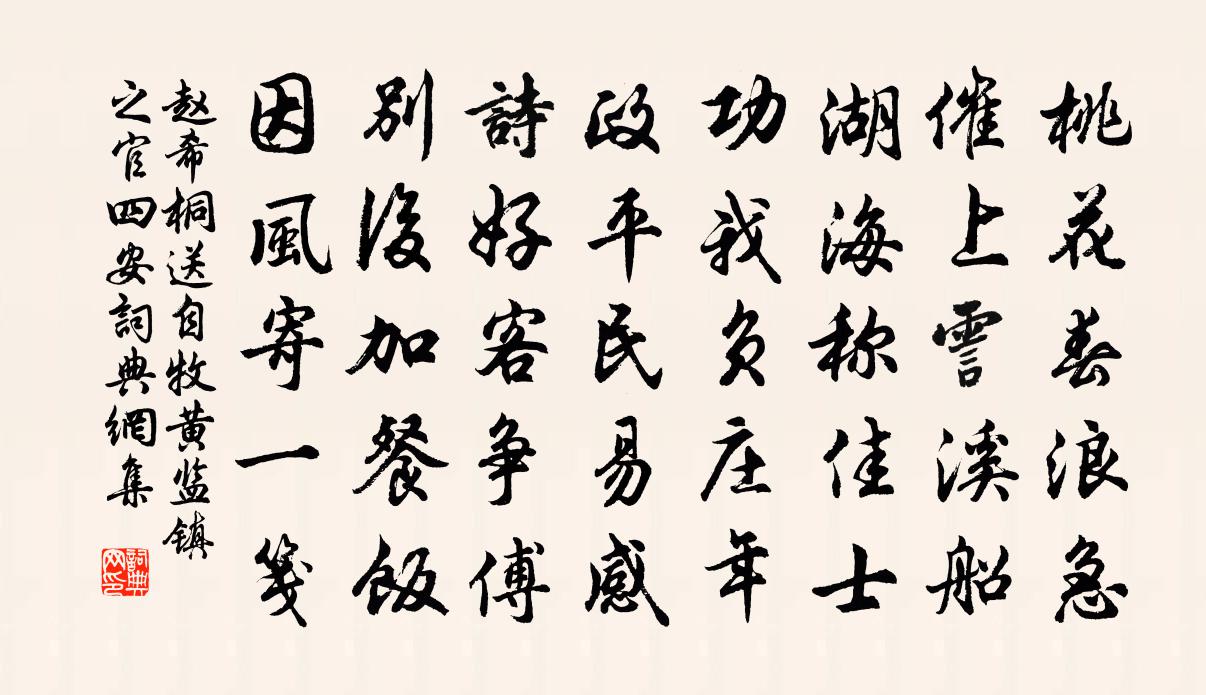 桃花春浪急
催上霅溪船
湖海称佳士
功我负庄年
政平民易感
詩好客争傅
别後加餐飯
因風寄一笺
赵希桐送自牧黄监镇
之官四安詞典網集
詞典网印